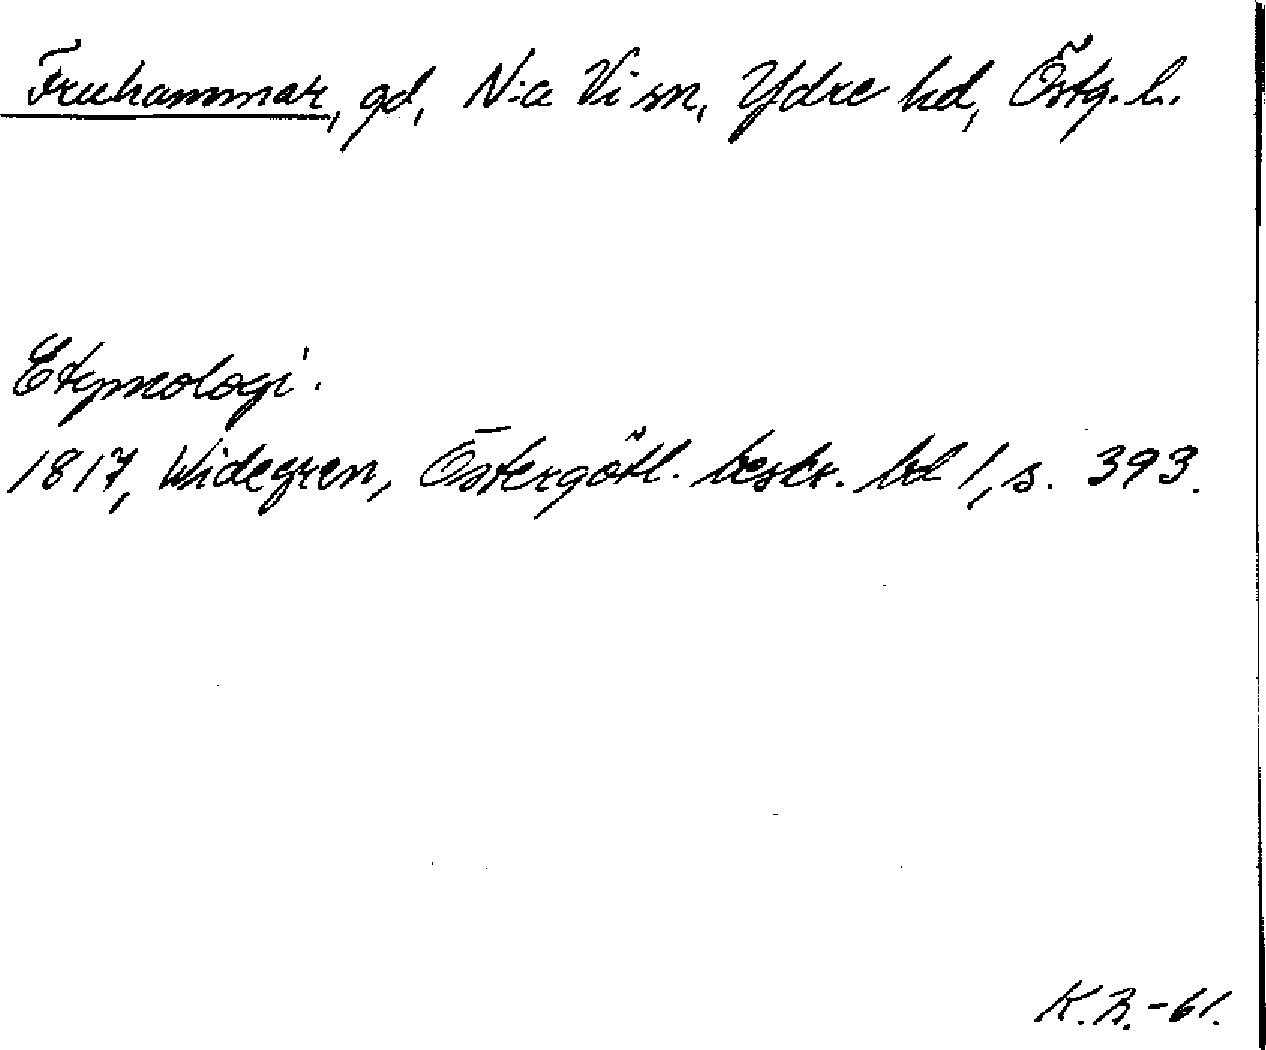 Fruhammar, gd, N:a Vi sn, Ydre hd, Östg. l.
Etymologi.
1817, Widegren, Östergötl. beskr. bd 1, s. 393.
K.R.-61.